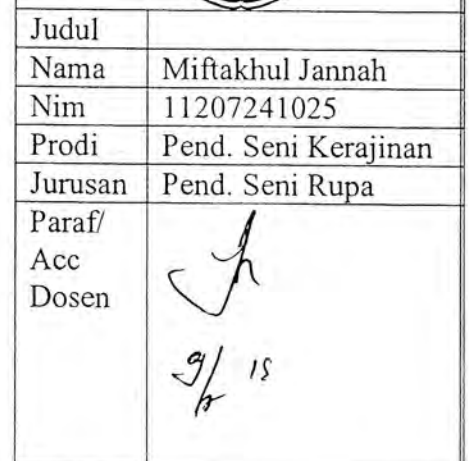 Judul
Nama Miftakhul Jannah
Nim 11207241025
Prodi Pend. Seni Kerajinan
Jurusan Pend. Seni Rupa
Paraf/
Acc
Dosen
15